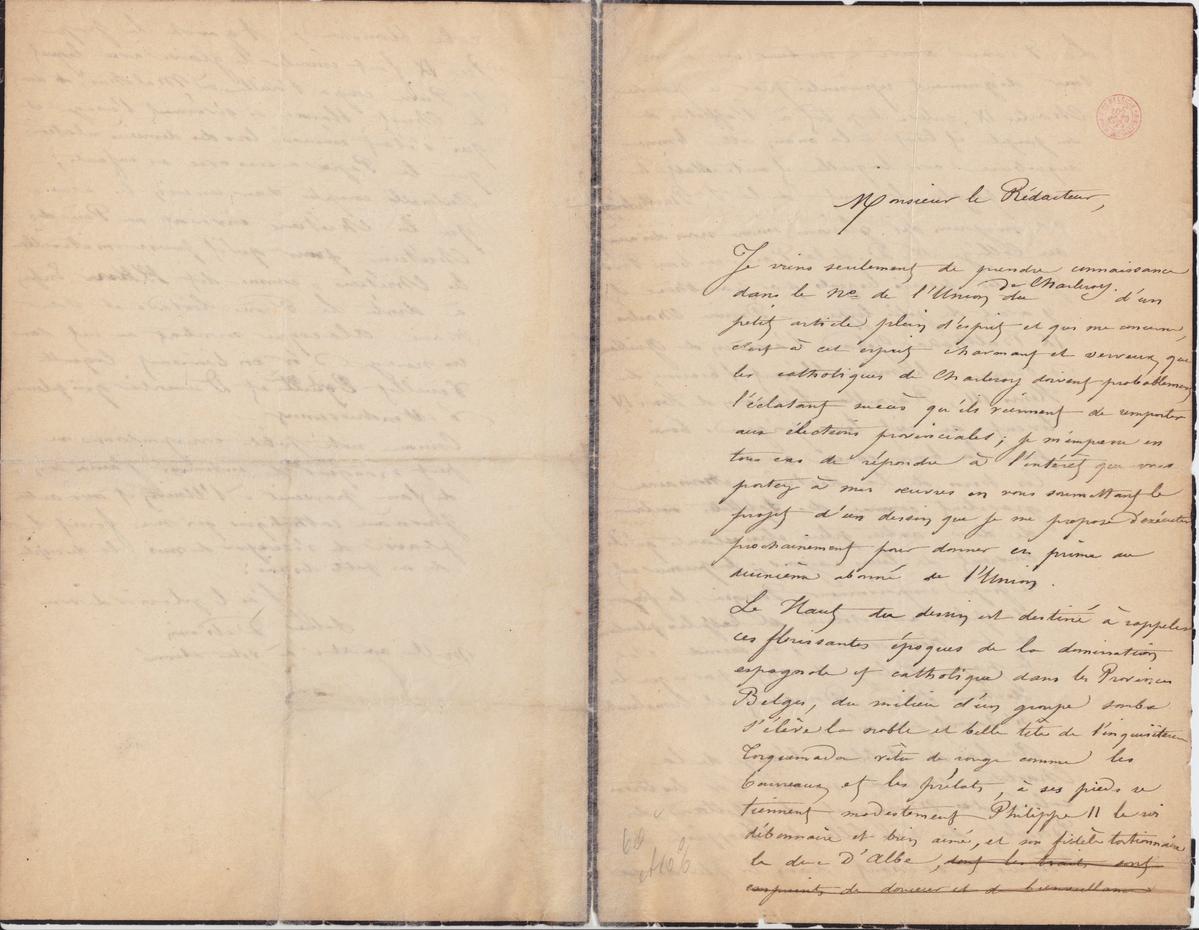 Monsieur le Rédacteur,
Je viens seulement de prendre connaissance
dans le No de l'Union de Charleroy du d'un
petit article plein d'esprit et qui me concerne,
c'est à cet esprit charmant et verveux que
les catholiques de Charleroy doivent probablement
l'éclatant succès qu'ils viennent de remporter
aux élections provinciales ; je m'empresse en
tous cas de répondre à l'intérêt que vous
portez à mes œuvres en vous soumettant le
projet d'un dessin que je me propose d'exécuter
prochainement pour donner en prime au
deuxième abonné de l'Union.
Le Haut du dessin est destiné à rappeler
ces florissantes époques de la domination
espagnole et catholique dans les Provinces
Belges, du milieu d'un groupe sombre
s'élève la noble et belle tête de l'inquisiteur
Torquemada vêtu de rouge comme les
bourreaux et les prélats, à ses pieds se
tiennent modestement Philippe II le roi
débonnaire et bien aimé, et son fidèle tortionnaire
le duc D'Albe, dont les traits sont
empreints de douceur et de bienveillance